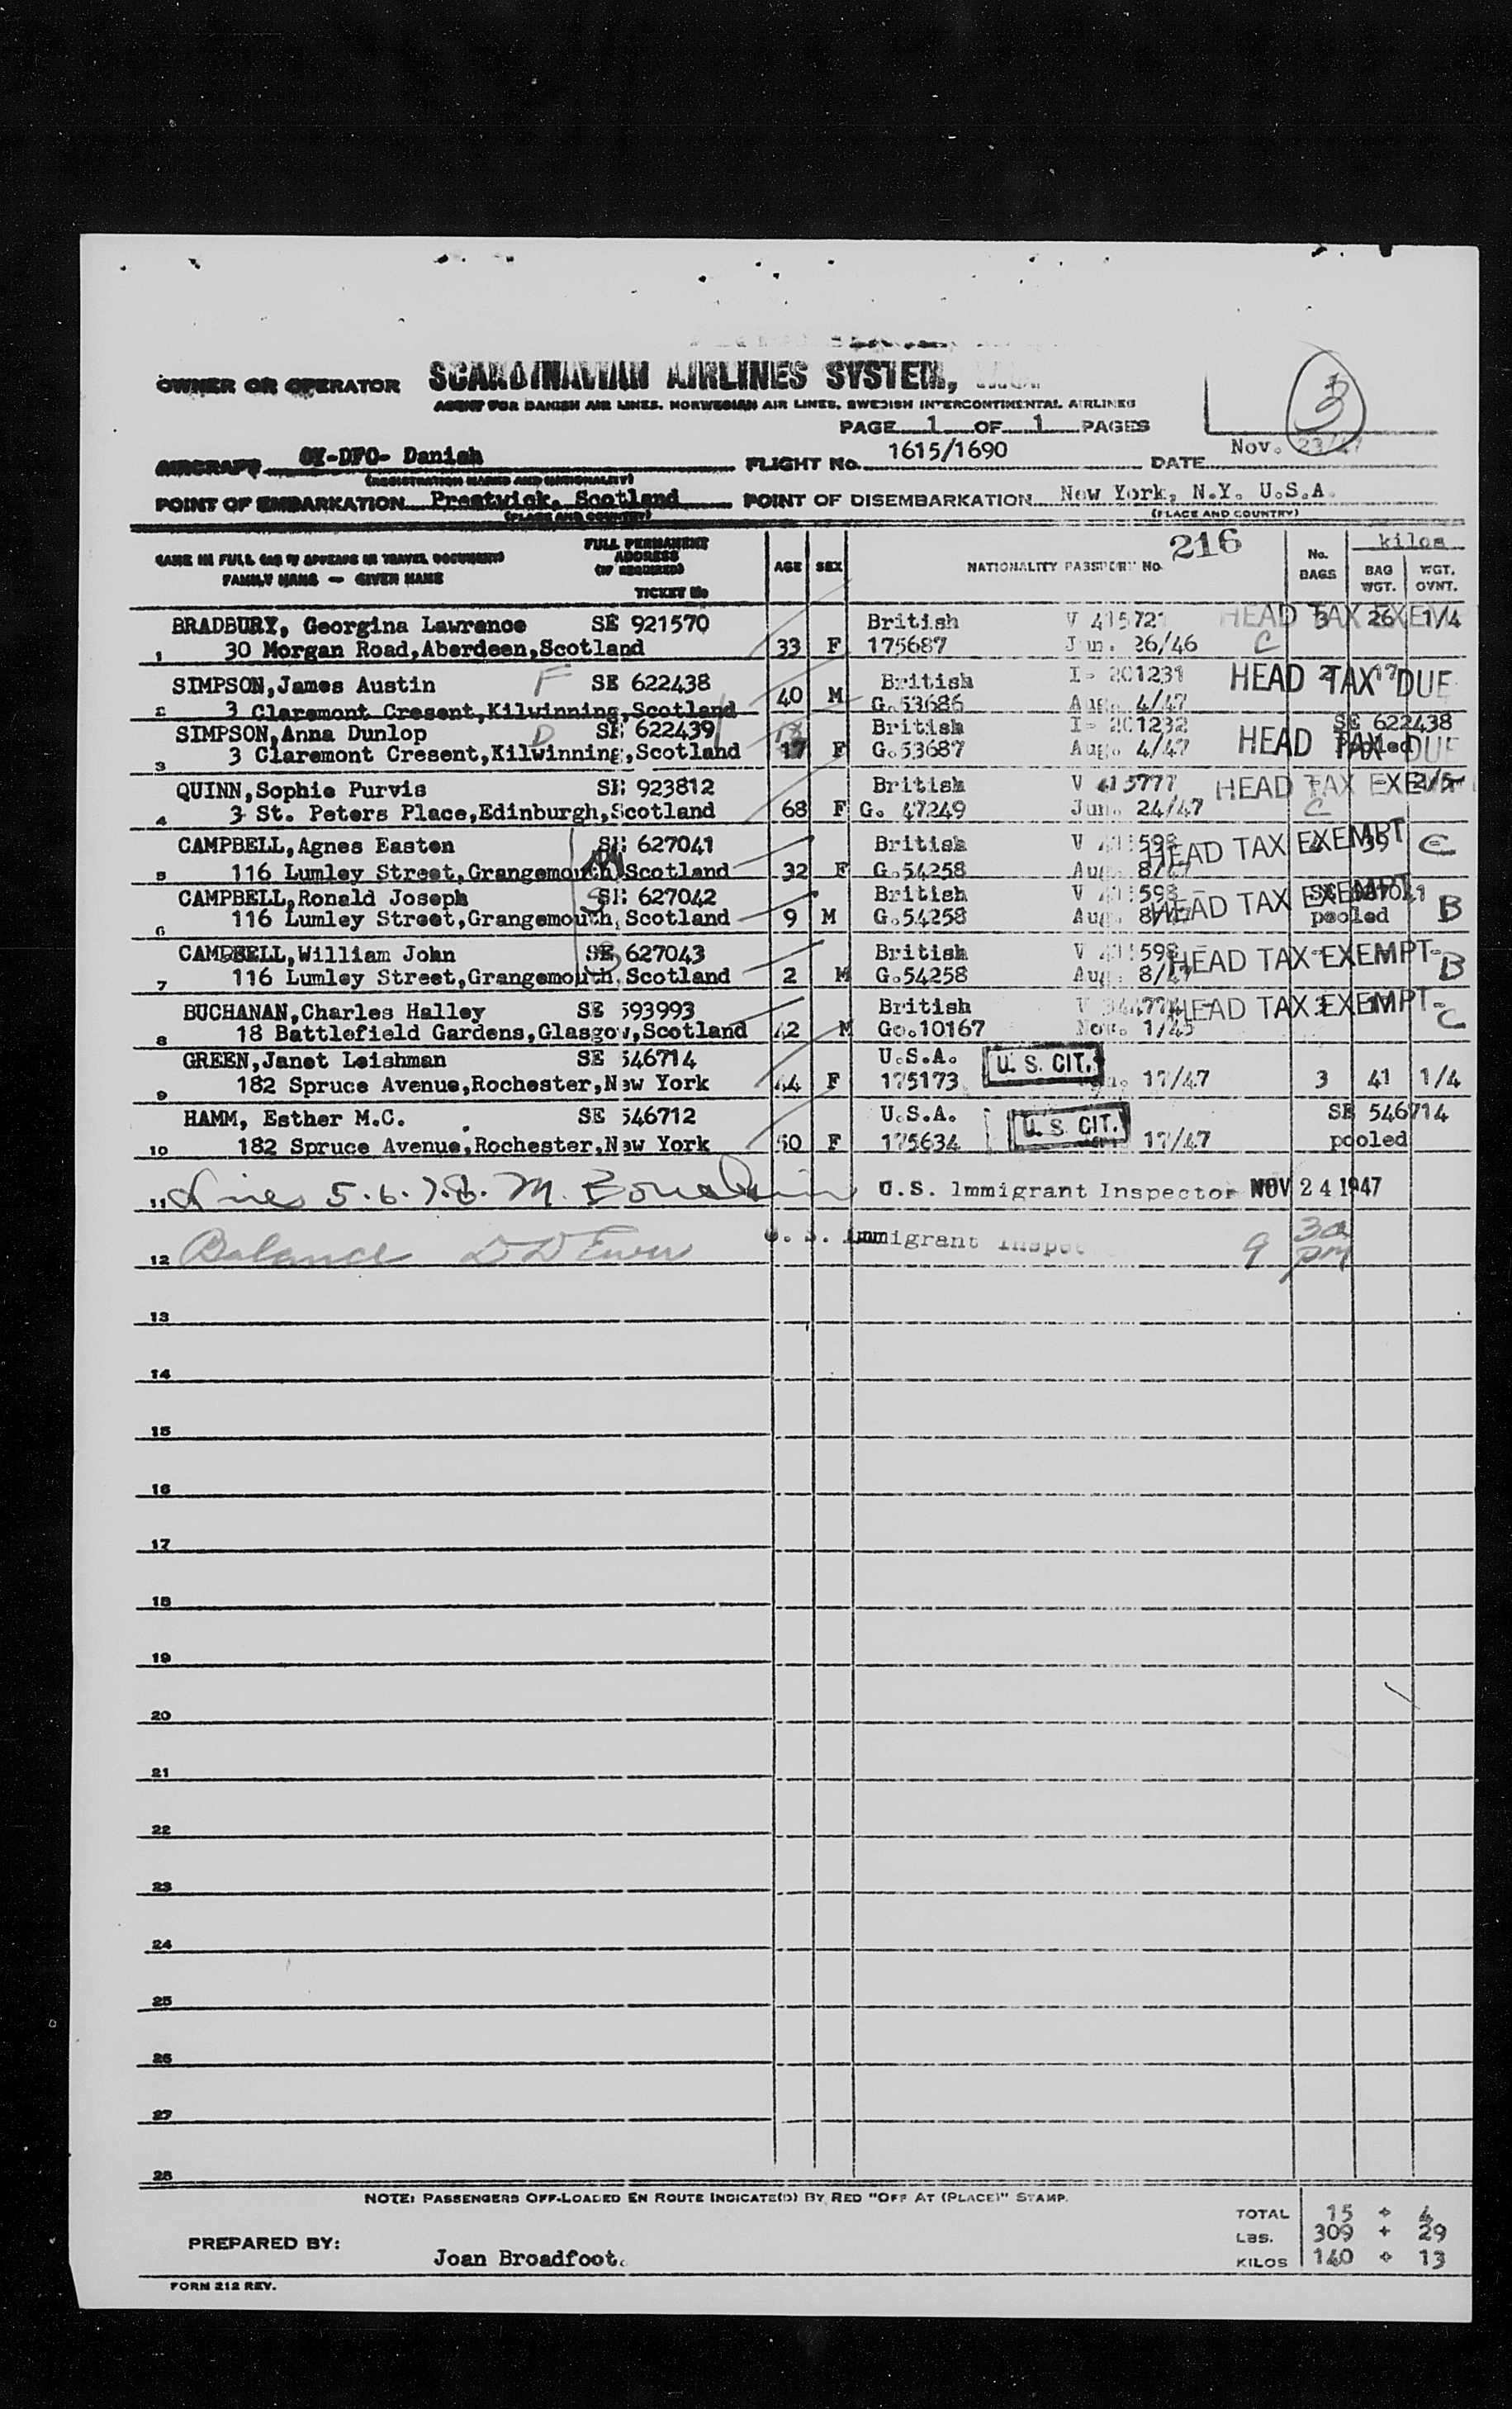 OWNER OR OPERATOR SCANDINAVIAN AIRLINES SYSTEM,
AGENT FOR DANISH AIR LINES, NORWEGIAN AIR LINES, SWEDISH INTERCONTINENTAL AIRLINES
3
PAGE 1 OF 1 PAGES
AIRCRAFT OY-DFO- Danish FLIGHT No. 1615/1690 DATE Nov. 23/47
(REGISTRATION MARKS AND NATIONALITY)
POINT OF EMBARKATION Prestwick, Scotland POINT OF DISEMBARKATION New York, N.Y. U.S.A.
(PLACE AND COUNTRY) (PLACE AND COUNTRY)
NAME IN FULL (AS IT APPEARS IN TRAVEL DOCUMENT) FULL PERMANENT ADDRESS (IF REQUIRED) AGE SEX NATIONALITY PASSPORT No. 216 No. BAGS kilos BAG WGT. WGT. OVNT.
FAMILY NAME — GIVEN NAME TICKET No
BRADBURY, Georgina Lawrence SE 921570 British V 415721 HEAD TAX EXEM 3 26 1/4
1 30 Morgan Road,Aberdeen,Scotland 33 F 175687 Jun. 26/46 C
SIMPSON,James Austin F SE 622438 British I- 201231 HEAD TAX DUE 2 17
2 3 Claremont Cresent,Kilwinning,Scotland 40 M G.53686 Aug. 4/47
SIMPSON,Anna Dunlop D SE 622439 British I- 201232 SE 622438
3 3 Claremont Cresent,Kilwinning,Scotland 17 F G.53687 Aug. 4/47 HEAD TAX DUE pooled
QUINN,Sophie Purvis SE 923812 British V 415777 HEAD TAX EXE
4 3 St. Peters Place,Edinburgh,Scotland 68 F G. 47249 Jun. 24/47 C
CAMPBELL,Agnes Easton SE 627041 British HEAD TAX EXEMPT 4 39 C
5 116 Lumley Street,Grangemouth,Scotland 32 F G.54258 Aug. 8/47
CAMPBELL,Ronald Joseph S SE 627042 British HEAD TAX EXEMPT SE 627041
6 116 Lumley Street,Grangemouth,Scotland 9 M G.54258 Aug. 8/47 pooled B
CAMPBELL,William John S SE 627043 British HEAD TAX EXEMPT- B
7 116 Lumley Street,Grangemouth,Scotland 2 M G.54258 Aug. 8/47
BUCHANAN,Charles Halley SE 593993 British HEAD TAX EXEMPT- C
8 18 Battlefield Gardens,Glasgow,Scotland 42 M Go.10167 Nov. 1/45
GREEN,Janet Leishman SE 546714 U.S.A. U. S. CIT.
9 182 Spruce Avenue,Rochester,New York 44 F 175173 17/47 3 41 1/4
HAMM, Esther M.C. SE 546712 U.S.A. U. S. CIT. SE 546714
10 182 Spruce Avenue,Rochester,New York 50 F 175634 17/47 pooled
11 Lines 5.6.7.8. M. U.S. Immigrant Inspector NOV 24 1947
12 Balance U. S. Immigrant Inspec 9 30 pm
13
14
15
16
17
18
19
20
21
22
23
24
25
26
27
28
NOTE: PASSENGERS OFF-LOADED EN ROUTE INDICATE(D) BY RED "OFF AT (PLACE)" STAMP.
TOTAL 15 + 4
LBS. 309 + 29
PREPARED BY: Joan Broadfoot. KILOS 140 + 13
FORM 212 REV.